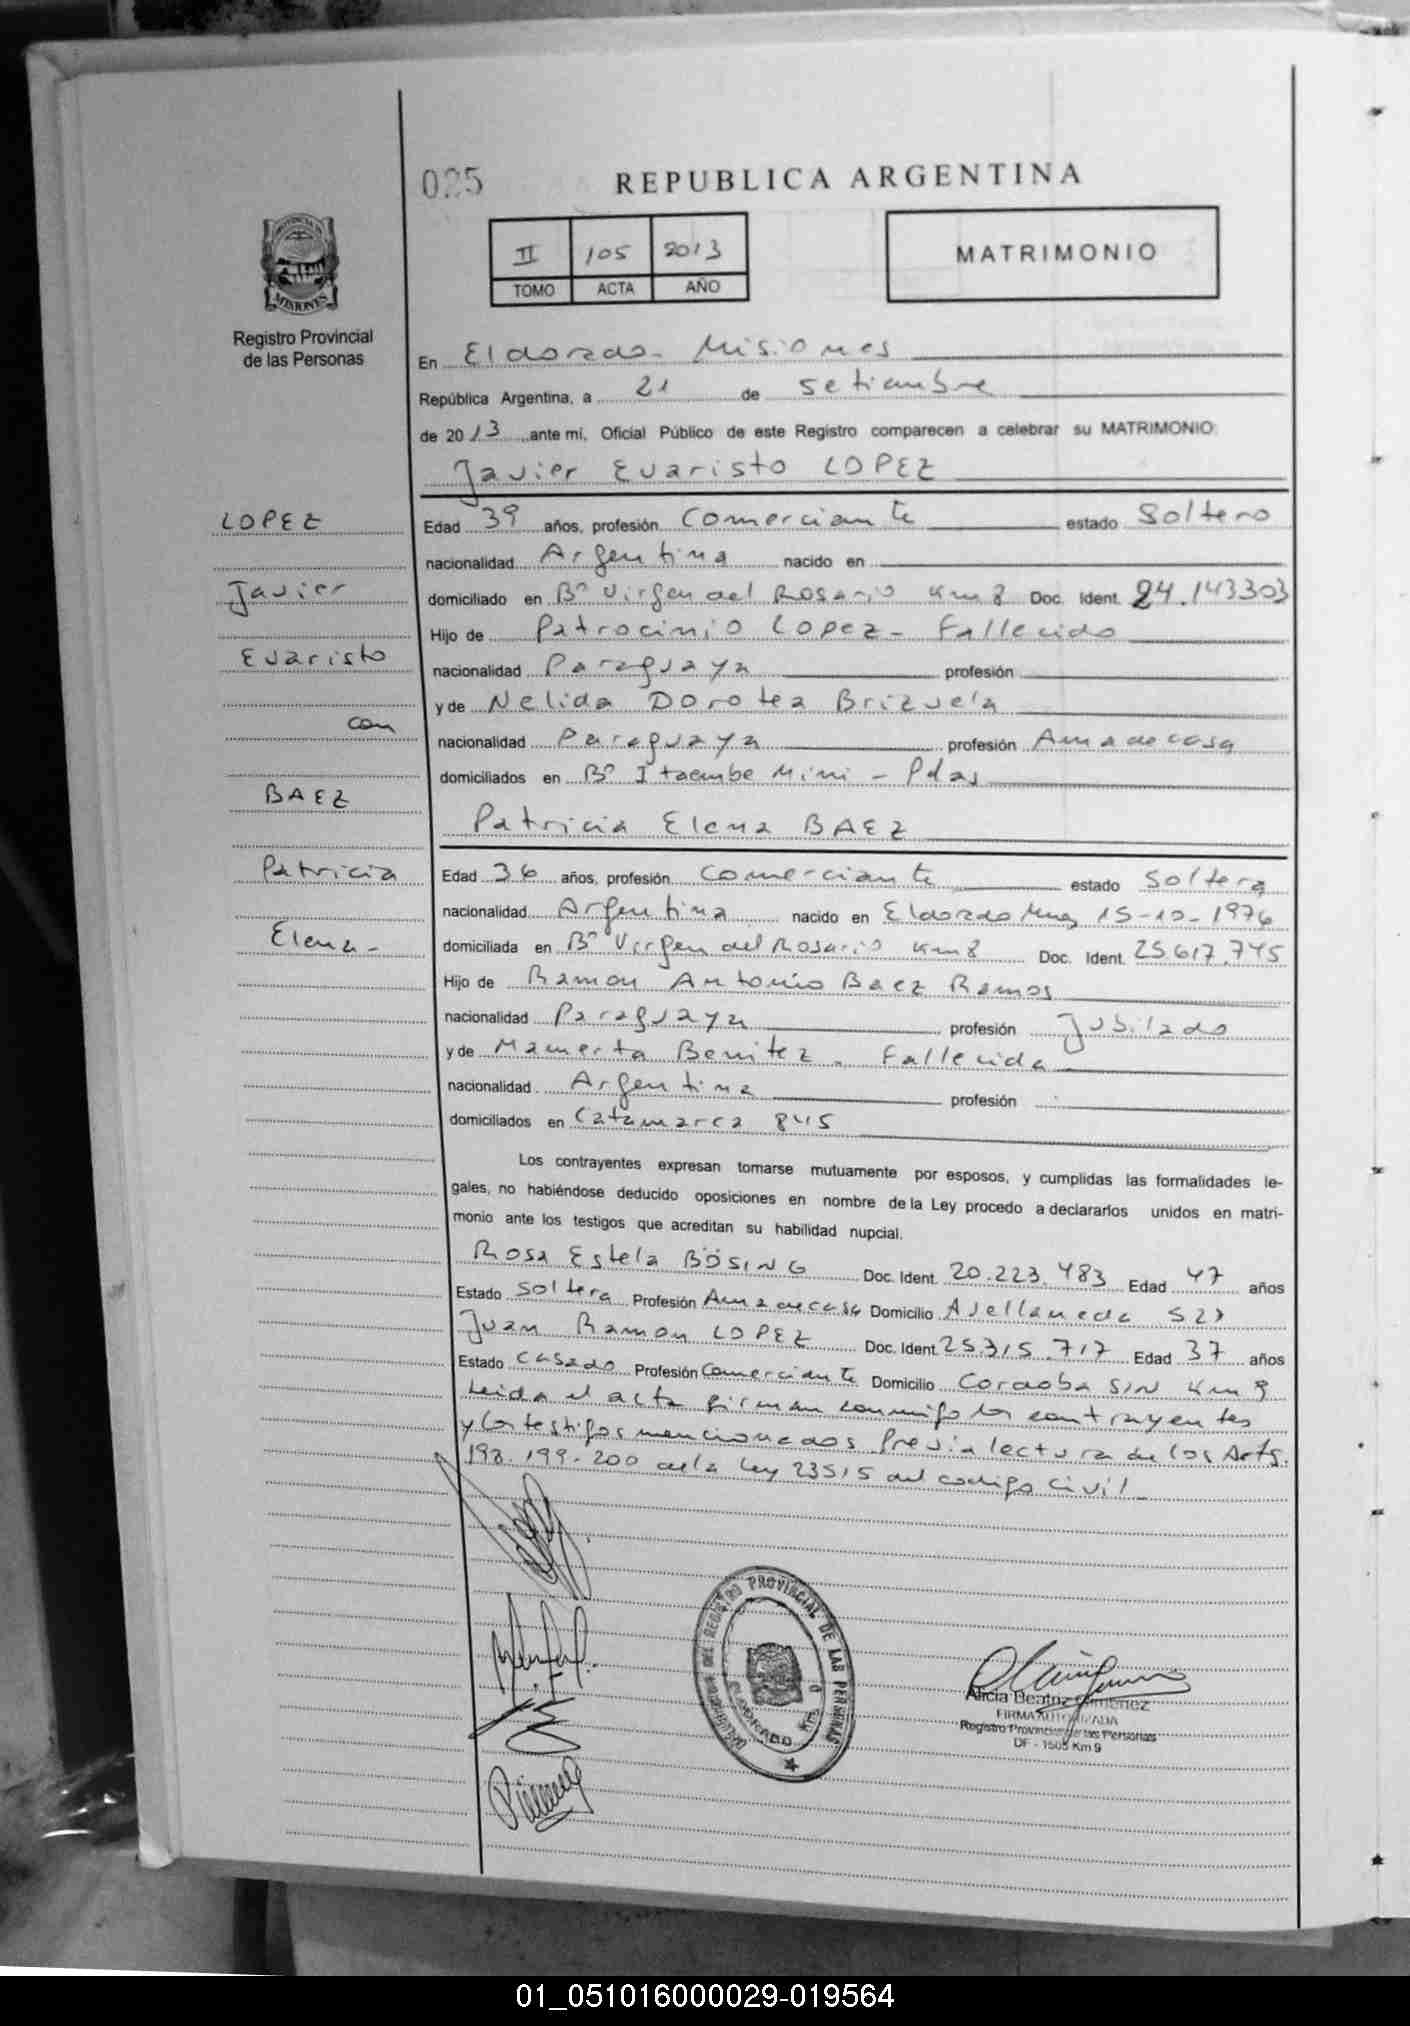 025
REPUBLICA ARGENTINA
II 105 2013
TOMO ACTA AÑO
MATRIMONIO
PROVINCIA DE
MISIONES
Registro Provincial
de las Personas
En Eldorado - Misiones
República Argentina, a 21 de setiembre
de 2013 ante mi, Oficial Público de este Registro comparecen a celebrar su MATRIMONIO:
Javier Evaristo LOPEZ
LOPEZ
Javier
Evaristo
con
BAEZ
Patricia
Elena -
Edad 39 años, profesión Comerciante estado Soltero
nacionalidad Argentina nacido en
domiciliado en Bº Virgen del Rosario Km 8 Doc. Ident. 24.143303
Hijo de Patrocinio Lopez - Fallecido
nacionalidad Paraguaya profesión
y de Nelida Dorotea Brizuela
nacionalidad Paraguaya profesión Ama de casa
domiciliados en Bº Itaembe Mini - Pdas
Patricia Elena BAEZ
Edad 36 años, profesión Comerciante estado Soltera
nacionalidad Argentina nacido en Eldorado Mnes 15-10-1976
domiciliada en Bº Virgen del Rosario Km 8 Doc. Ident. 25.617.745
Hijo de Ramon Antonio Baez Ramos
nacionalidad Paraguaya profesión Jubilado
y de Mamerta Benitez - Fallecida
nacionalidad Argentina profesión
domiciliados en Catamarca 845
Los contrayentes expresan tomarse mutuamente por esposos, y cumplidas las formalidades le-
gales, no habiéndose deducido oposiciones en nombre de la Ley procedo a declararlos unidos en matri-
monio ante los testigos que acreditan su habilidad nupcial.
Rosa Estela BÖSING Doc. Ident. 20.223.483 Edad 47 años
Estado Soltera Profesión Ama de casa Domicilio Avellaneda
Juan Ramon LOPEZ Doc. Ident. 25.315.717 Edad 37 años
Estado Casado Profesión Comerciante Domicilio Cordoba S/N Km 9
Leida el acta firman conmigo los contrayentes
y los testigos mencionados Previa lectura de los Arts.
198.199.200 de la Ley 23515 del codigo civil
DEL REGISTRO PROVINCIAL DE LAS PERSONAS
ELDORADO KM 9
Alicia Beatriz Gimenez
FIRMA AUTORIZADA
Registro Provincial de las Personas
DF - 1505 Km 9
01_051016000029-019564